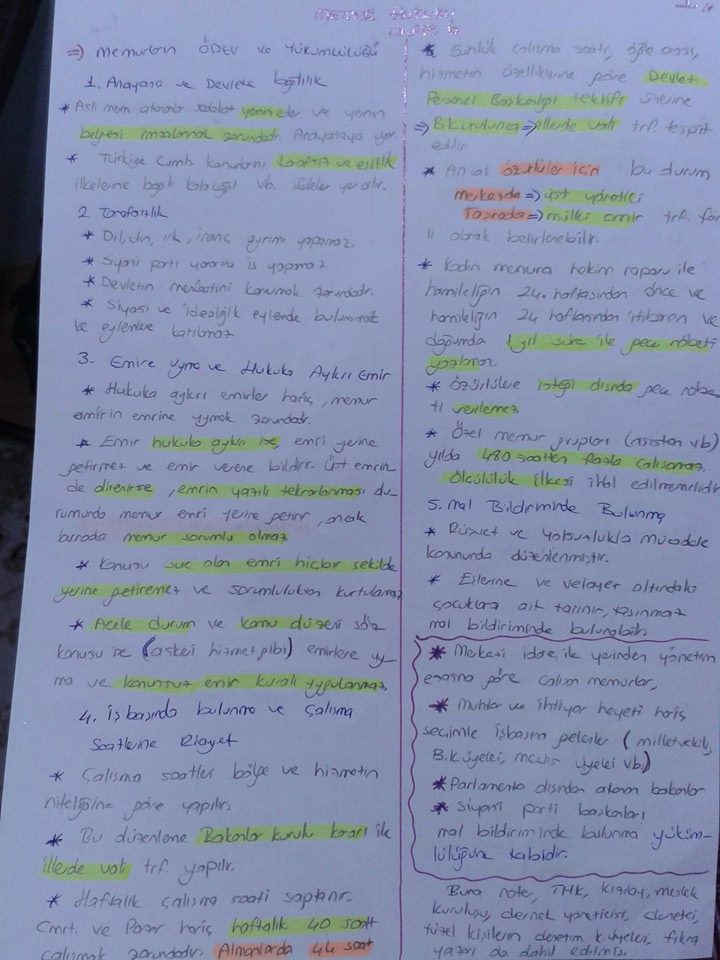 Memur Hukuku
=> MEMURLARIN ÖDEV ve YÜKÜMLÜLÜĞÜ
1. Anayasa ve Devlete bağlılık
* Asli mem atananlar sadakat yeminleder ve yemin
belgesi imzalamak zorundadır. Anayasaya
* Türkiye Cumh. kanunlarını tarafsız ve eşitlik
ilkelerine bağlı kalacağı vb. ifadeler yer alır.
2 Tarafsızlık
* Dil, din, ırk, inanç ayrımı yapamaz.
* Siyasi parti yararına iş yapamaz
* Devletin menfaatini korumak zorundadır.
* Siyasi ve ideolojik eylemde bulunamaz
ve eylemlere katılamaz
3. Emire Uyma ve Hukuka Aykırı Emir
* Hukuka aykırı emirler hariç, memur
amirin emrine uymak zorundadır.
* Emir hukuka aykırı ise, emri yerine
getirmez ve emir verene bildirir. Üst emrin
de direnirse, emrin yazılı tekrarlanması du
rumunda memur emri yerine getirir, ancak
burada memur sorumlu olmaz
* Konusu suç olan emri hiçbir şekilde
yerine getiremez ve sorumluluktan kurtulamaz
* Acele durum ve kamu düzeni söz
konusu ise (askeri hizmet gibi) emirlere uy
ma ve kanunsuz emir kuralı uygulanmaz
4. İş başında bulunma ve Çalışma
Saatlerine Riayet
* Çalışma saatleri bölge ve hizmetin
niteliğine göre yapılır.
* Bu düzenleme Bakanlar kurulu kararı ile
illerde vali trf. yapılır.
* Haftalık çalışma saati saptanır.
Cmrt. ve Pazar hariç haftalık 40 saat
çalışmak zorundadır. Almanlarda 44 saat
* Günlük çalışma saati, öğle arası,
hizmetin özelliklerine göre Devlet
Personel Başkanlığı teklifi üzerine
=> B.kurulunca => illerde vali trf. tespit
edilir
* Ancak özürlüler için bu durum
merkezde => üst yönetici
Taşrada => mülki amir trf. far
lı olarak belirlenebilir.
* Kadın memura hekim raporu ile
hamileliğin 24. haftasından önce ve
hamileliğin 24 haftasından itibaren ve
doğumda 1 yıl süre ile gece nöbeti
yazılamaz.
* Özürlülere isteği dışında gece nöbe
ti verilemez
* Özel memur grupları (asistan vb)
yılda 480 saatten fazla çalışamaz
Ölçülülük ilkesi ihlal edilmemelidir
5. Mal Bildiriminde Bulunma
* Rüşvet ve yolsuzlukla mücadele
kanununda düzenlenmiştir.
* Eşlerine ve velayet altındaki
çocuklara ait taşınır, taşınmaz
mal bildiriminde bulunabilir.
* Merkezi idare ile yerinden yönetim
esasına göre çalışan memurlar,
* Muhtar ve ihtiyar heyeti hariç
seçimle işbaşına gelenler (milletvekili,
B.K üyeleri, meclis üyeleri vb.)
* Parlamento dışından atanan bakanlar
* Siyasi parti başkanları
mal bildiriminde bulunma yüküm-
lülüğüne tabidir.
Buna note, THK, Kızılay, meslek
kuruluşu, dernek yöneticisi, denetçi,
tüzel kişilerin denetim k.üyeleri, fıkra
yazarı da dahil edilmiş.